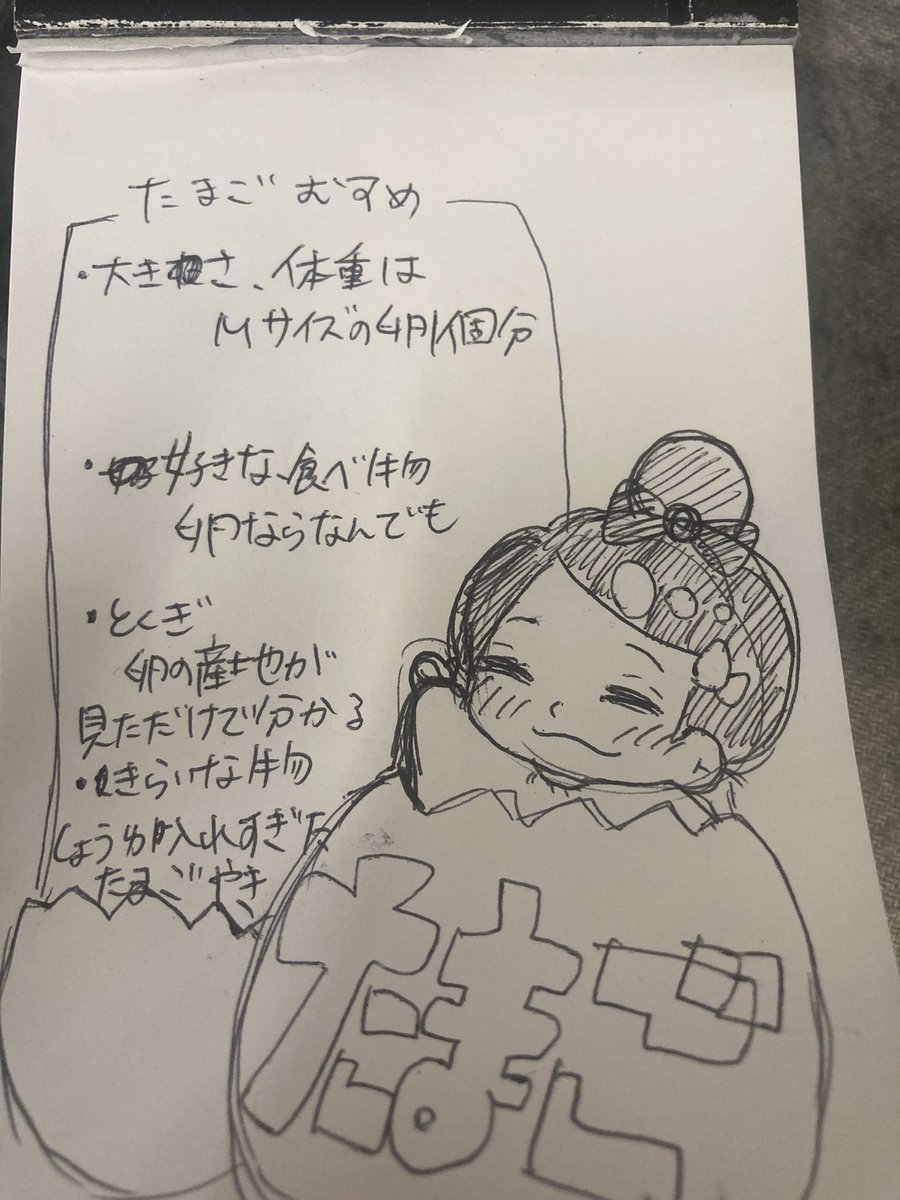 たまごむすめ
・大きさ、体重は
Mサイズの卵1個分
・好きな食べ物
卵ならなんでも
・とくぎ
卵の産地が
見ただけで分かる
・きらいな物
しょうが入れすぎた
たまごやき
たまご